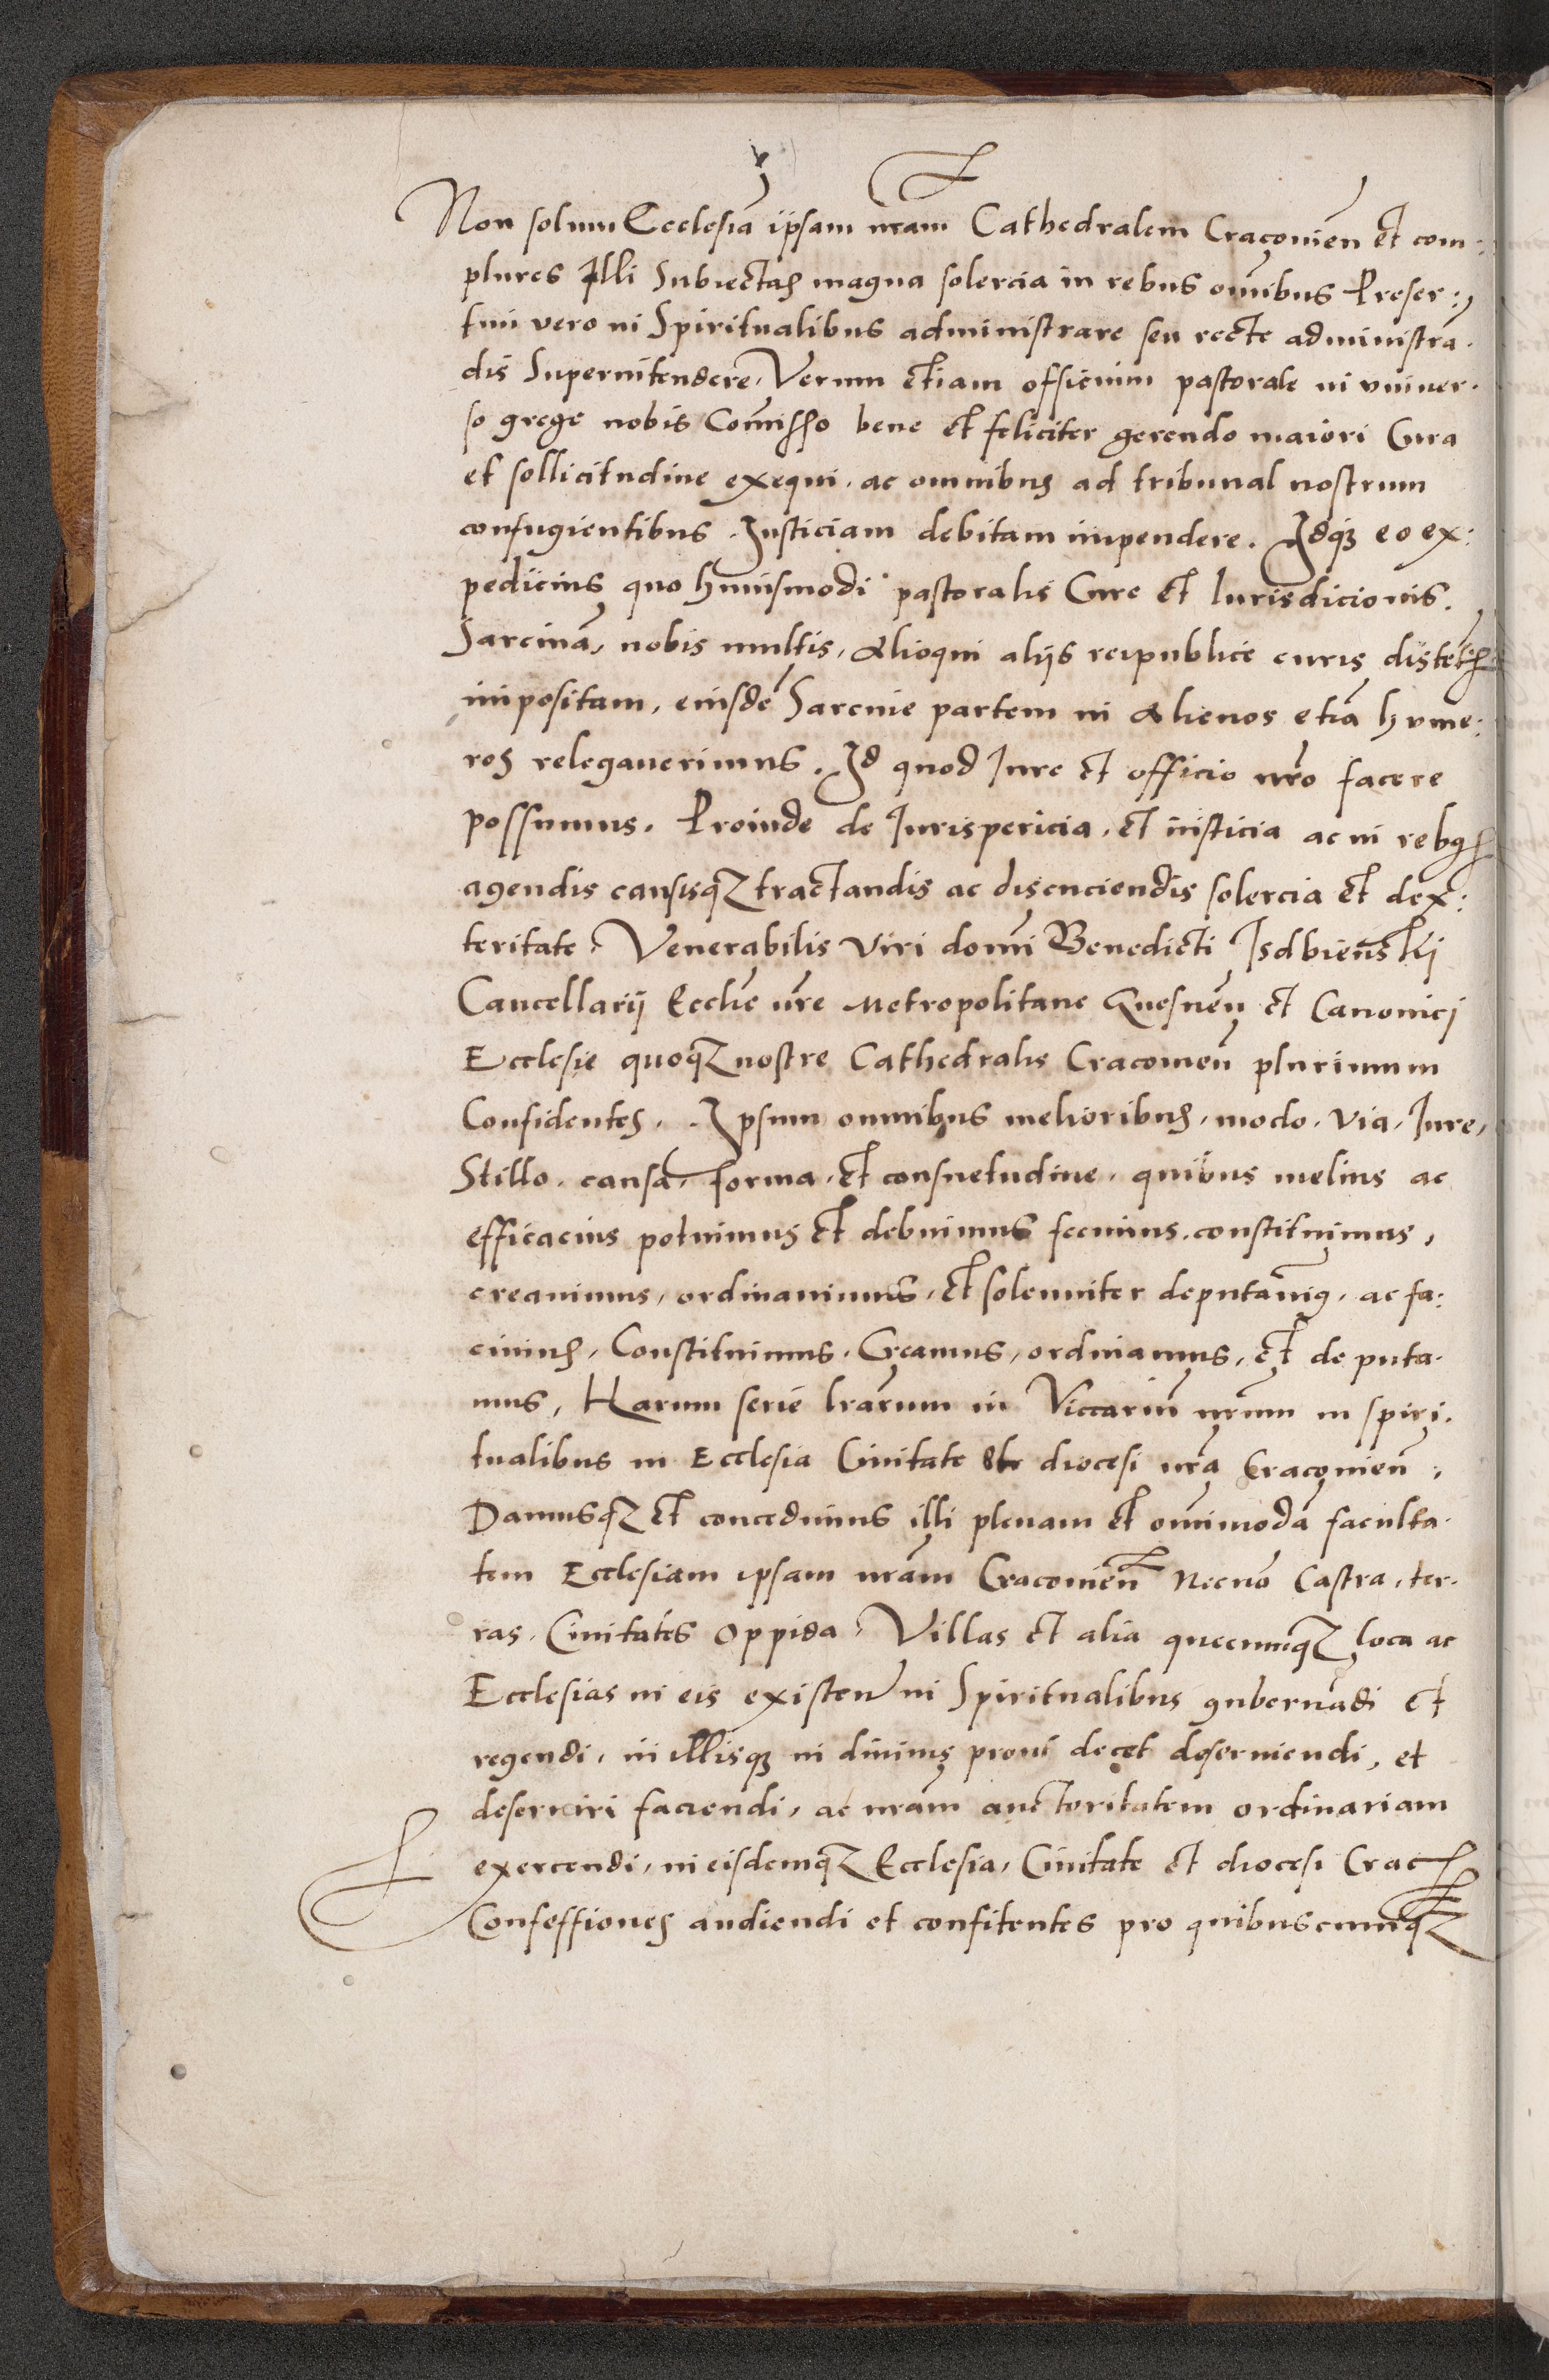 Non solum Ecclesiā ipsam nr̄am Cathedralem Cracovien̄ et com:
plures Illi Subiectas magna solercia in rebus om̄ibus Preser:
tim vero in Spiritualibus administrare seu recte administrā.
dis Superintendere, Verum etiam officium pastorale in vniver.
so grege nobis Com̄isso bene et feliciter gerendo maiori Cura
et sollicitudine exequi. ac omnibus ad tribunal nostrum
confugientibus. Iusticiam debitam impendere. Idq₃ eo ex:
pedicius quo huiusmodi pastoralis Cure et Iurisdicionis.
Sarcinā, nobis multis, Alioqui aliis reipublice curis distētis
impositam, eiusdē Sarcine partem in Alienos etiā hvme:
ros relegaverimus. Id quod Iure et officio nr̄o facere
possumus. Proinde de Iurispericia. et iusticia ac in rebus
agendis causisq₃ tractandis ac discuciendis solercia et dex:
teritate, Venerabilis Viri dom̄i Benedicti Isdbienski
Cancellarij Eccl̄ie nr̄e Metropolitane Gnesnen̄ et Canonici
Ecclesie quoq₃ nostre Cathedralis Cracovien̄ plurimum
Confidentes. Ipsum omnibus melioribus. modo. via. Iure,
Stillo. causa, forma. et consuetudine. quibus melius ac
efficacius potuimus et debuimus fecimus. constituimus,
creavimus, ordinavimus, et solenniter deputavimus. ac fa:
cimus, Constituimus. Creamus, ordinamus, et de puta.
mus, Harum serie lr̄arum in Viccariū nr̄um in spiri.
tualibus in Ecclesia Civitate et diocesi nr̄a Cracovien̄,
Damusq₃ et concedimus illi plenam et om̄imodā faculta.
tem Ecclesiam ipsam nr̄am Cracovien̄ Necnō Castra, ter.
ras. Civitates Oppida, Villas et alia quecumq₃ loca ac
Ecclesias in eis existen̄ in Spiritualibus gubernādi et
regendi, in illisq₃ in divinis prout decet deserviendi, et
deserviri faciendi, ac nr̄am auctoritatem ordinariam
exercendi, in eisdemq₃ Ecclesia, Civitate et diocesi Crac
Confessiones audiendi et confitentes pro quibuscumq₃